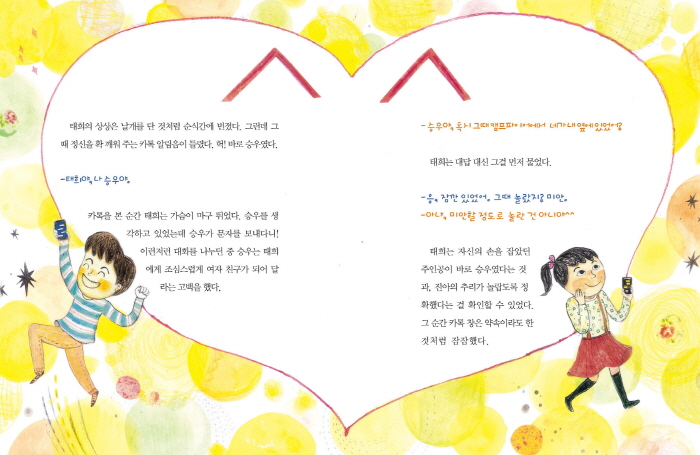 태희의 상상은 날개를 단 것처럼 순식간에 번졌다. 그런데 그
때 정신을 확 깨워 주는 카톡 알림음이 들렸다. 헉! 바로 승우였다.
-태희야, 나 승우야.
카톡을 본 순간 태희는 가슴이 마구 뛰었다. 승우를 생
각하고 있었는데 승우가 문자를 보내다니!
이런저런 대화를 나누던 중 승우는 태희
에게 조심스럽게 여자 친구가 되어 달
라는 고백을 했다.
-승우야, 혹시 그때 캠프파이어에서 네가 내 옆에 있었어?
태희는 대답 대신 그걸 먼저 물었다.
-응. 잠깐 있었어. 그때 놀랐지? 미안.
-아냐. 미안할 정도로 놀란 건 아니야^^
태희는 자신의 손을 잡았던
주인공이 바로 승우였다는 것
과, 진아의 추리가 놀랍도록 정
확했다는 걸 확인할 수 있었다.
그 순간 카톡 창은 약속이라도 한
것처럼 잠잠했다.